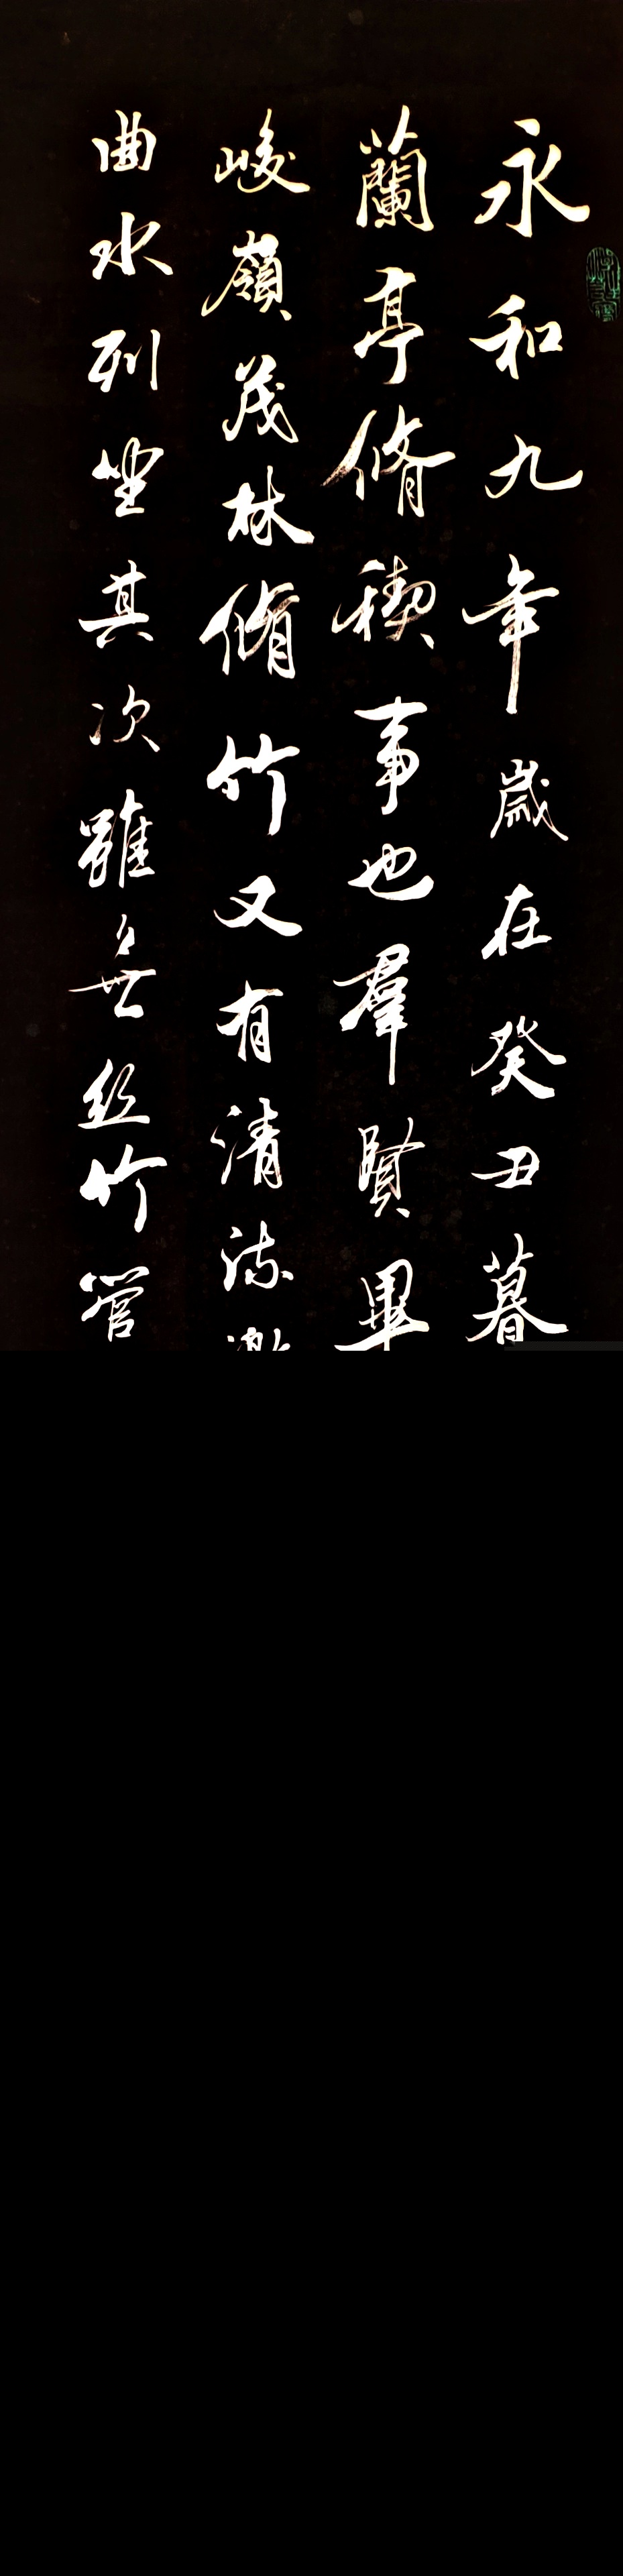 永和九年歲在癸丑暮
蘭亭脩稧事也羣賢畢
峻嶺茂林脩竹又有清流激
曲水列坐其次雖無絲竹管